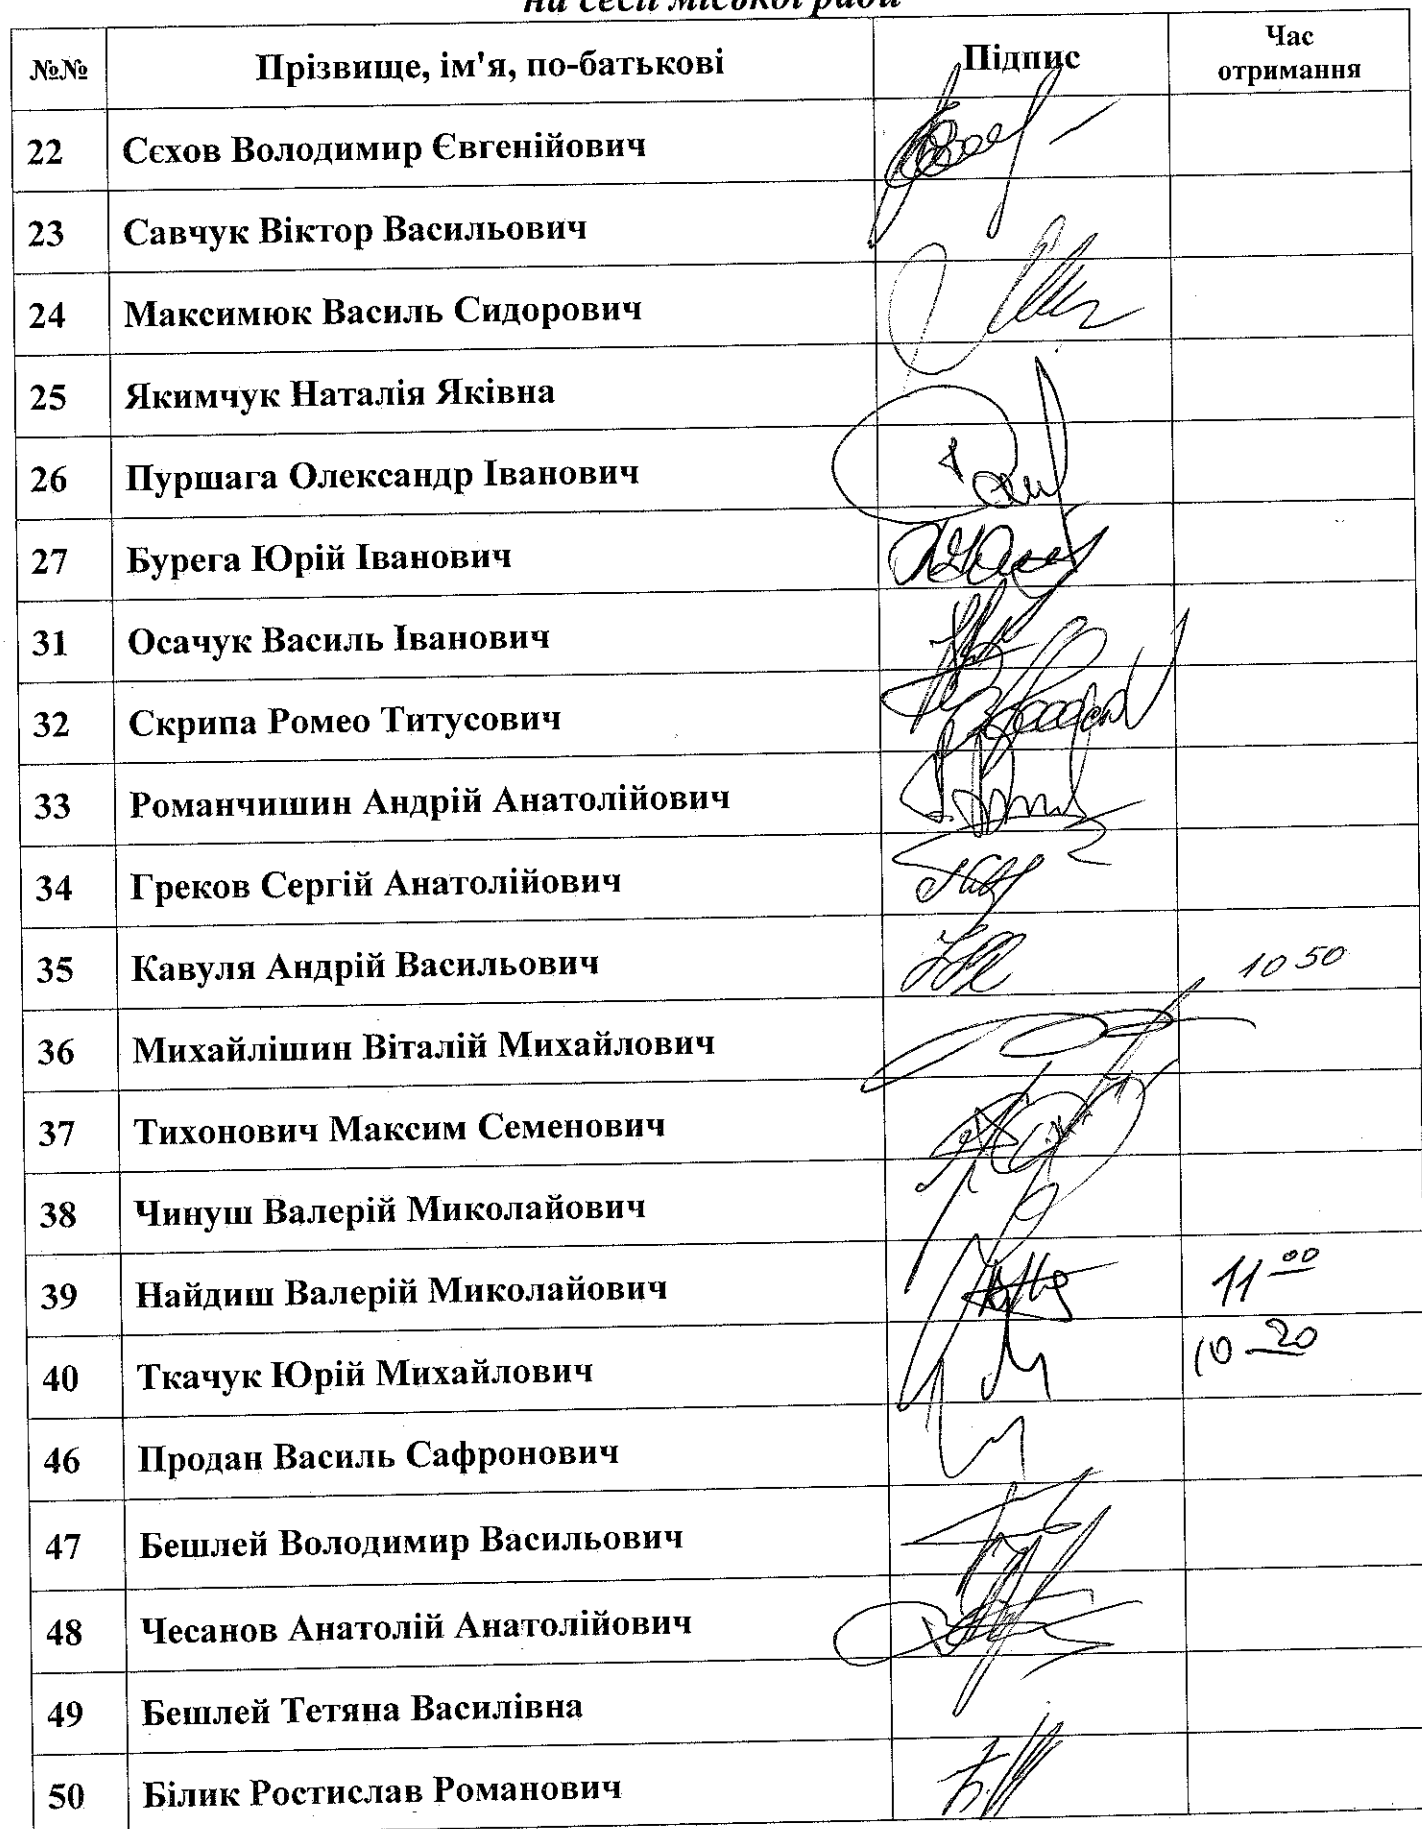 на сесії міської ради
№№ Прізвище, ім'я, по-батькові Підпис Час отримання
22 Сєхов Володимир Євгенійович
23 Савчук Віктор Васильович
24 Максимюк Василь Сидорович
25 Якимчук Наталія Яківна
26 Пуршага Олександр Іванович
27 Бурега Юрій Іванович
31 Осачук Василь Іванович
32 Скрипа Ромео Титусович
33 Романчишин Андрій Анатолійович
34 Греков Сергій Анатолійович
35 Кавуля Андрій Васильович 10 50
36 Михайлішин Віталій Михайлович
37 Тихонович Максим Семенович
38 Чинуш Валерій Миколайович
39 Найдиш Валерій Миколайович 11 00
40 Ткачук Юрій Михайлович 10 20
46 Продан Василь Сафронович
47 Бешлей Володимир Васильович
48 Чесанов Анатолій Анатолійович
49 Бешлей Тетяна Василівна
50 Білик Ростислав Романович